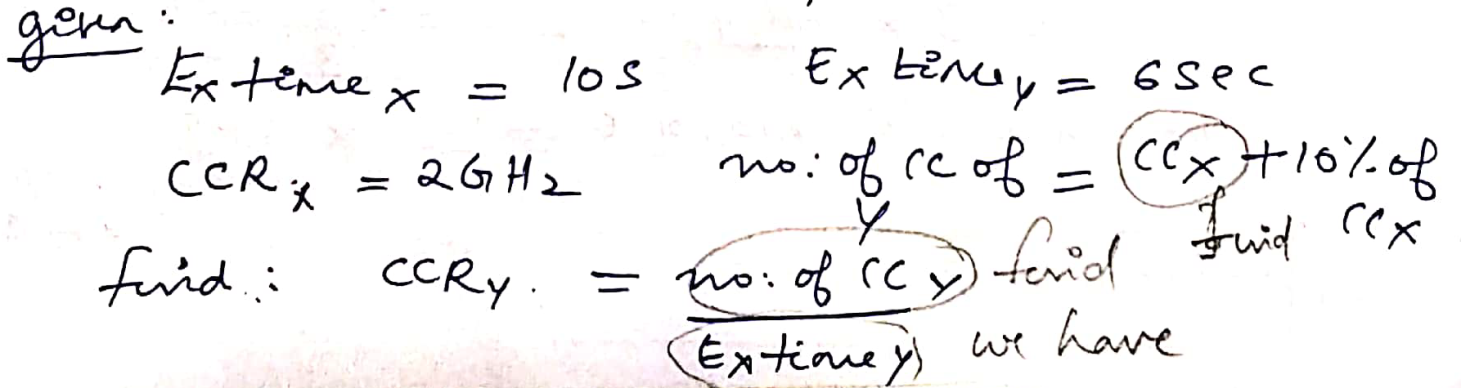 given :
Ex time x = 10 S Ex time y = 6 sec
CCR x = 2 GHz no: of CC of Y = CCx + 10% of CCx
find
find : CCRy. = no: of CCy find
Ex time y we have